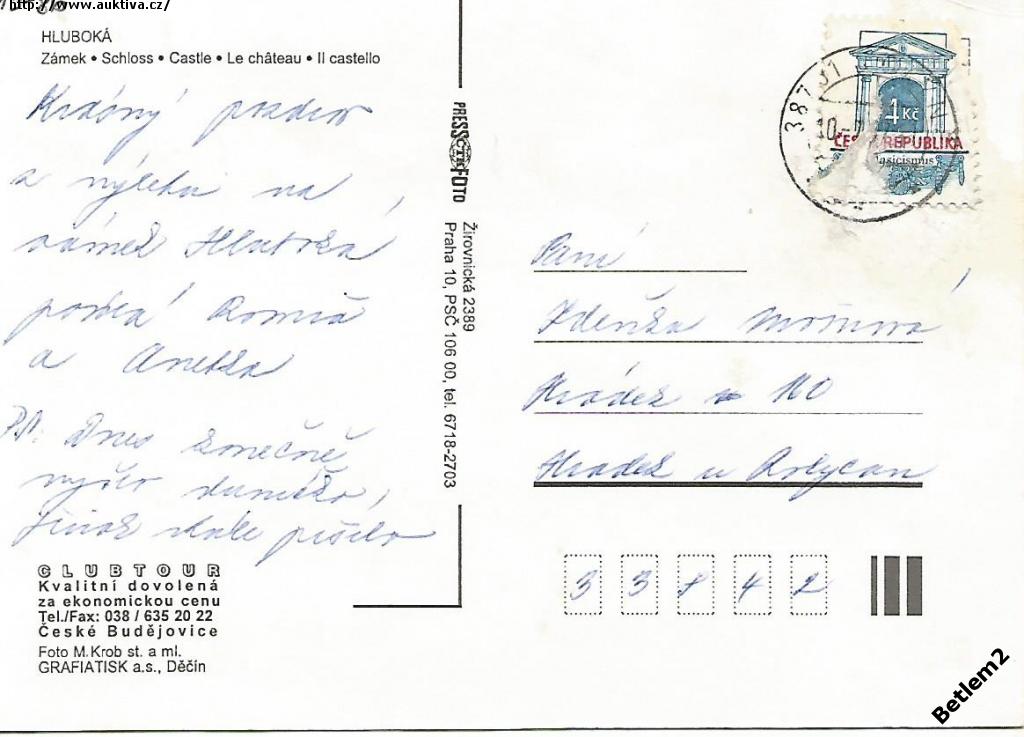 http://www.auktiva.cz/
HLUBOKÁ
Zámek • Schloss • Castle • Le château • Il castello
Krásný pozdrav
z výletu na
zámek Hluboká
posílá
a Anetka
PS: Dnes konečně
vyšlo sluníčko,
jinak stále pršelo
CLUBTOUR
Kvalitní dovolená
za ekonomickou cenu
Tel./Fax: 038 / 635 20 22
České Budějovice
Foto M. Krob st. a ml.
GRAFIATISK a.s., Děčín
PRESSFOTO
Žirovnická 2389
Praha 10, PSČ 106 00, tel. 6718-2703
387 01
4 Kč
ČESKÁ REPUBLIKA
Paní
Zdeňka
Hrádek 110
Hrádek u Rokycan
33842
Betlem2